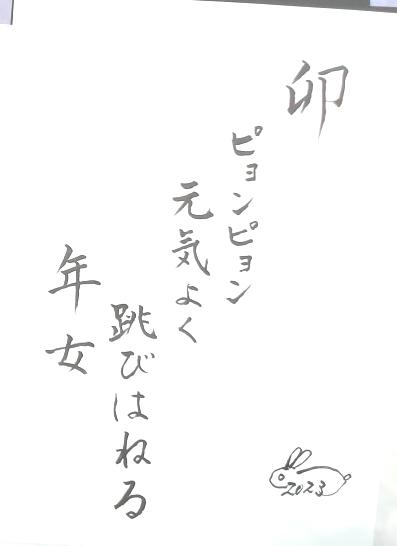 卯
ピョンピョン
元気よく
跳びはねる
年女
2023